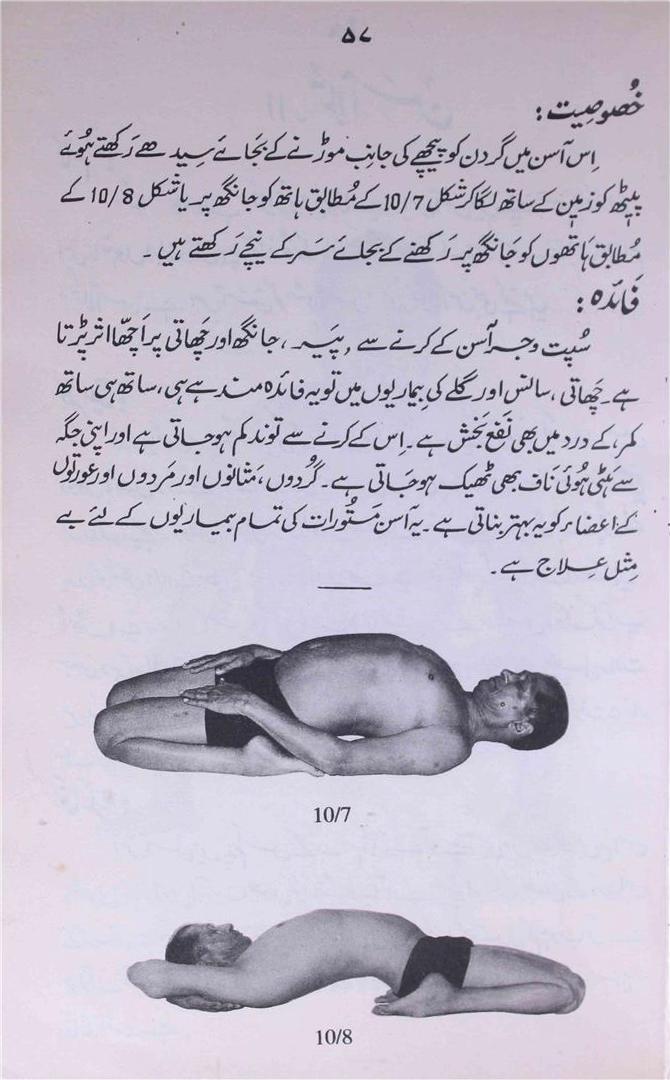 ۵۷
خُصُوصِیت:
اِس آسن میں گردن کو پیچھے کی جانِب موڑنے کے بجَائے سِیدھے رَکھتے ہُوئے
پیٹھ کو زمین کے ساتھ لگا کر شکل 10/7 کے مُطابق ہاتھ کو جانگھ پر یا شکل 10/8 کے
مُطابق ہَاتھوں کو جَانگھ پر رَکھنے کے بجائے سَر کے نیچے رَکھتے ہیں ۔
فَائدہ:
سُپت وجر آسن کے کرنے سے ,پَیر ، جانگھ اور چَھاتی پر اَچّھا اثر پڑتا
ہے ۔ چَھاتی ، سانس اور گلے کی بِیماریوں میں تو یہ فائدہ مند ہے ہی ، ساتھ ہی ساتھ
کمر، کے درد میں بھی نَفع بَخش ہے ۔ اِس کے کرنے سے توند کم ہو جاتی ہے اور اپنی جگہ
سے ہَٹی ہُوئی نَاف بھی ٹھیک ہو جَاتی ہے ۔ گُردوں ، مَثانوں اور مَردوں اور عورتوں
کے اعضاء کو یہ بہتر بناتی ہے ۔ یہ آسن مَستُورات کی تمام بیماریوں کے لئے بے
مِثل عِلاج ہے ۔
10/7
10/8